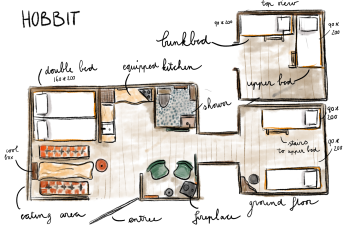 HOBBIT
top view
90 x 200
bunkbed
90 x 200
double bed
160 x 200
equipped kitchen
upper bed
shower
90 x 200
stairs to upper bed
90 x 200
cool box
eating area
entree
fireplace
ground floor